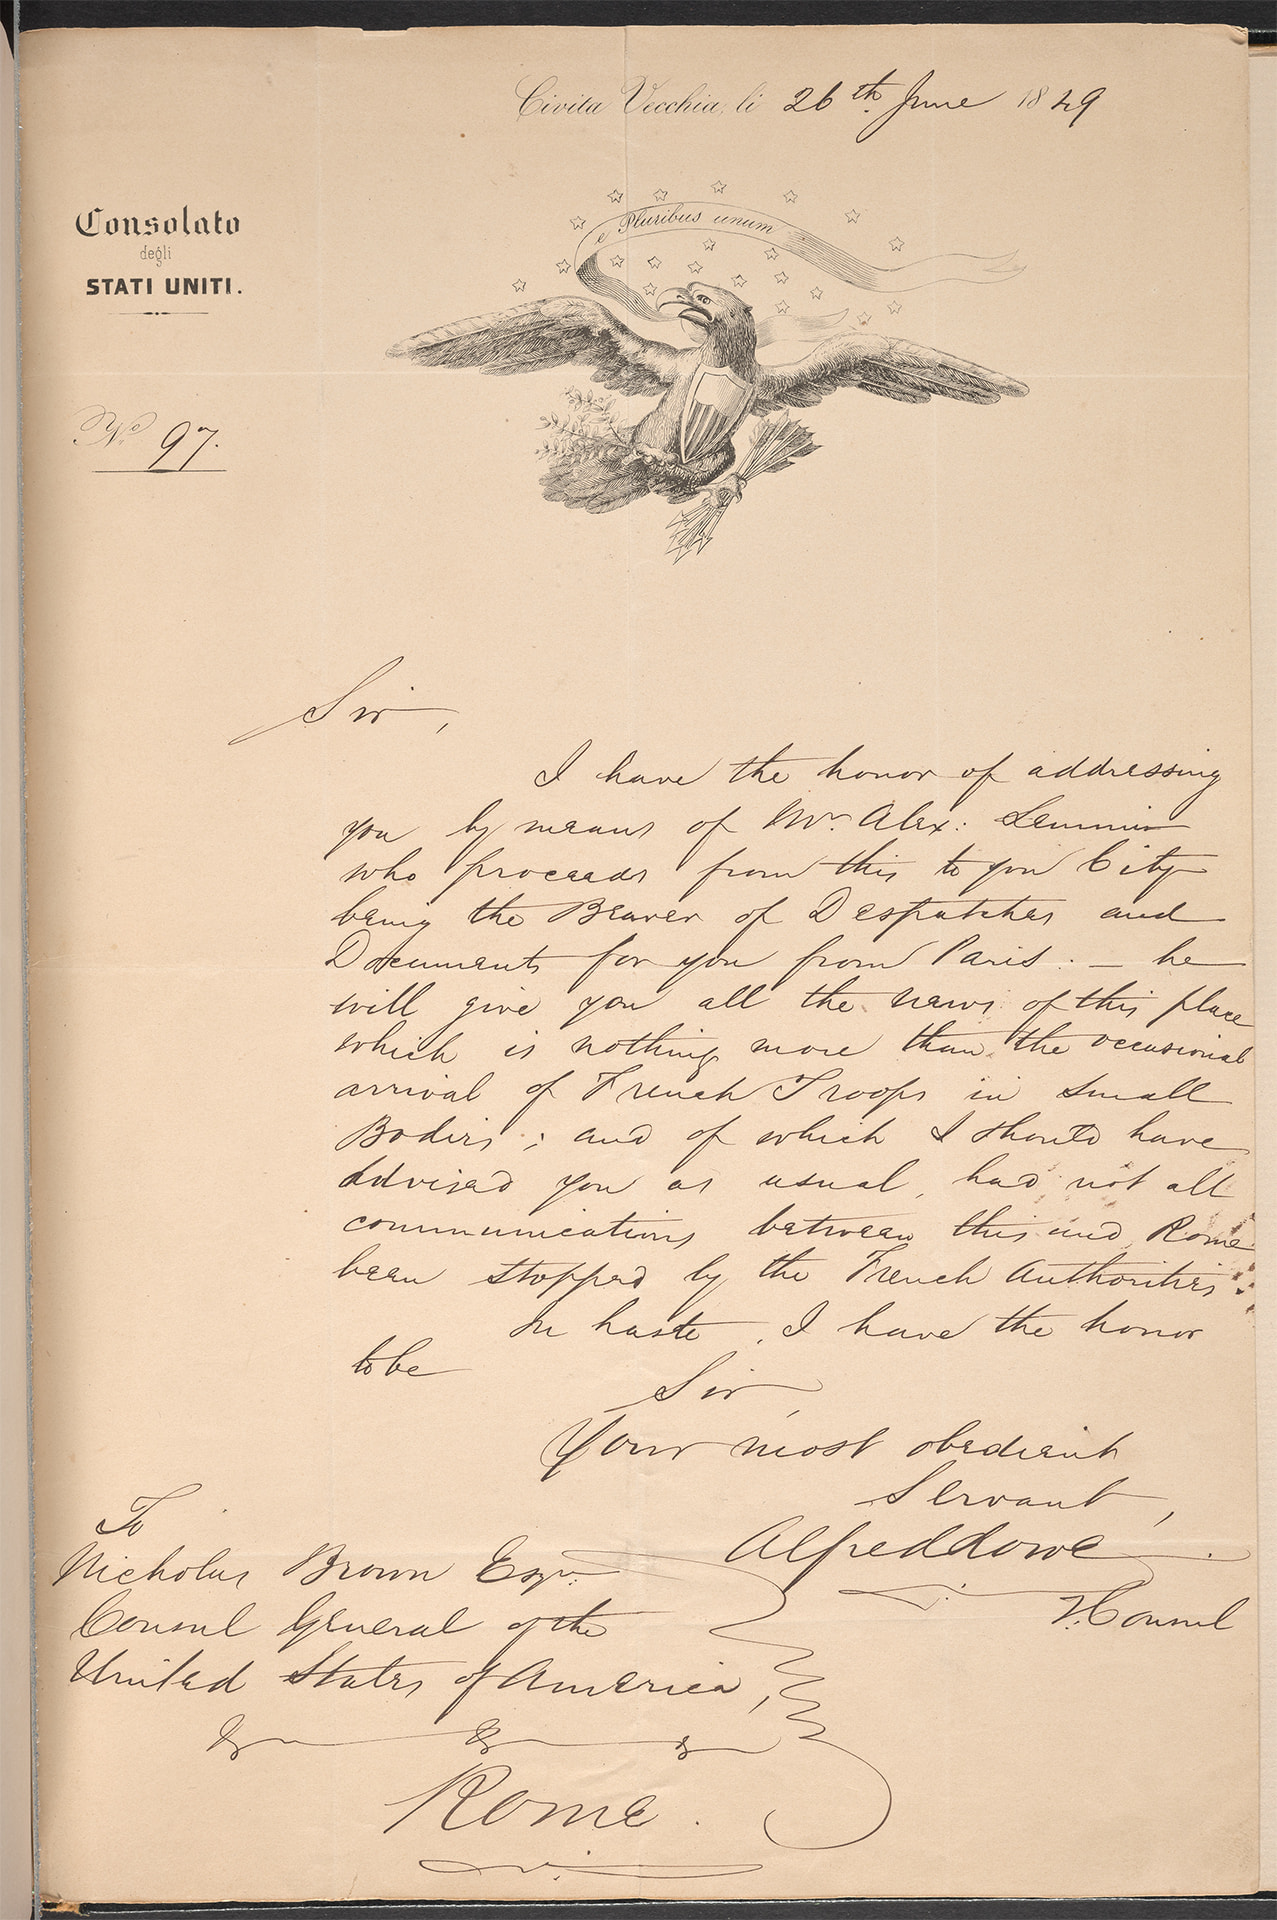 Civita Vecchia, li 26th June 1849
e Pluribus unum
Consolato
degli
STATI UNITI.
No 97.
Sir,
I have the honor of addressing
you by means of Mr. Alex:
who proceeds from this to your City
being the Bearer of Despatches and
Documents for you from Paris: — he
will give you all the news of this place
which is nothing more than the occasional
arrival of French Troops in small
Bodies; and of which I should have
advised you as usual, had not all
communications between this and Rome
been stopped by the French Authorities.
In haste, I have the honor
to be
Sir,
Your most obedient
Servant,
Alfred Lowe
V. Consul
To
Nicholas Brown Esqr:
Consul General of the
United States of America,
&c &c &c
Rome.